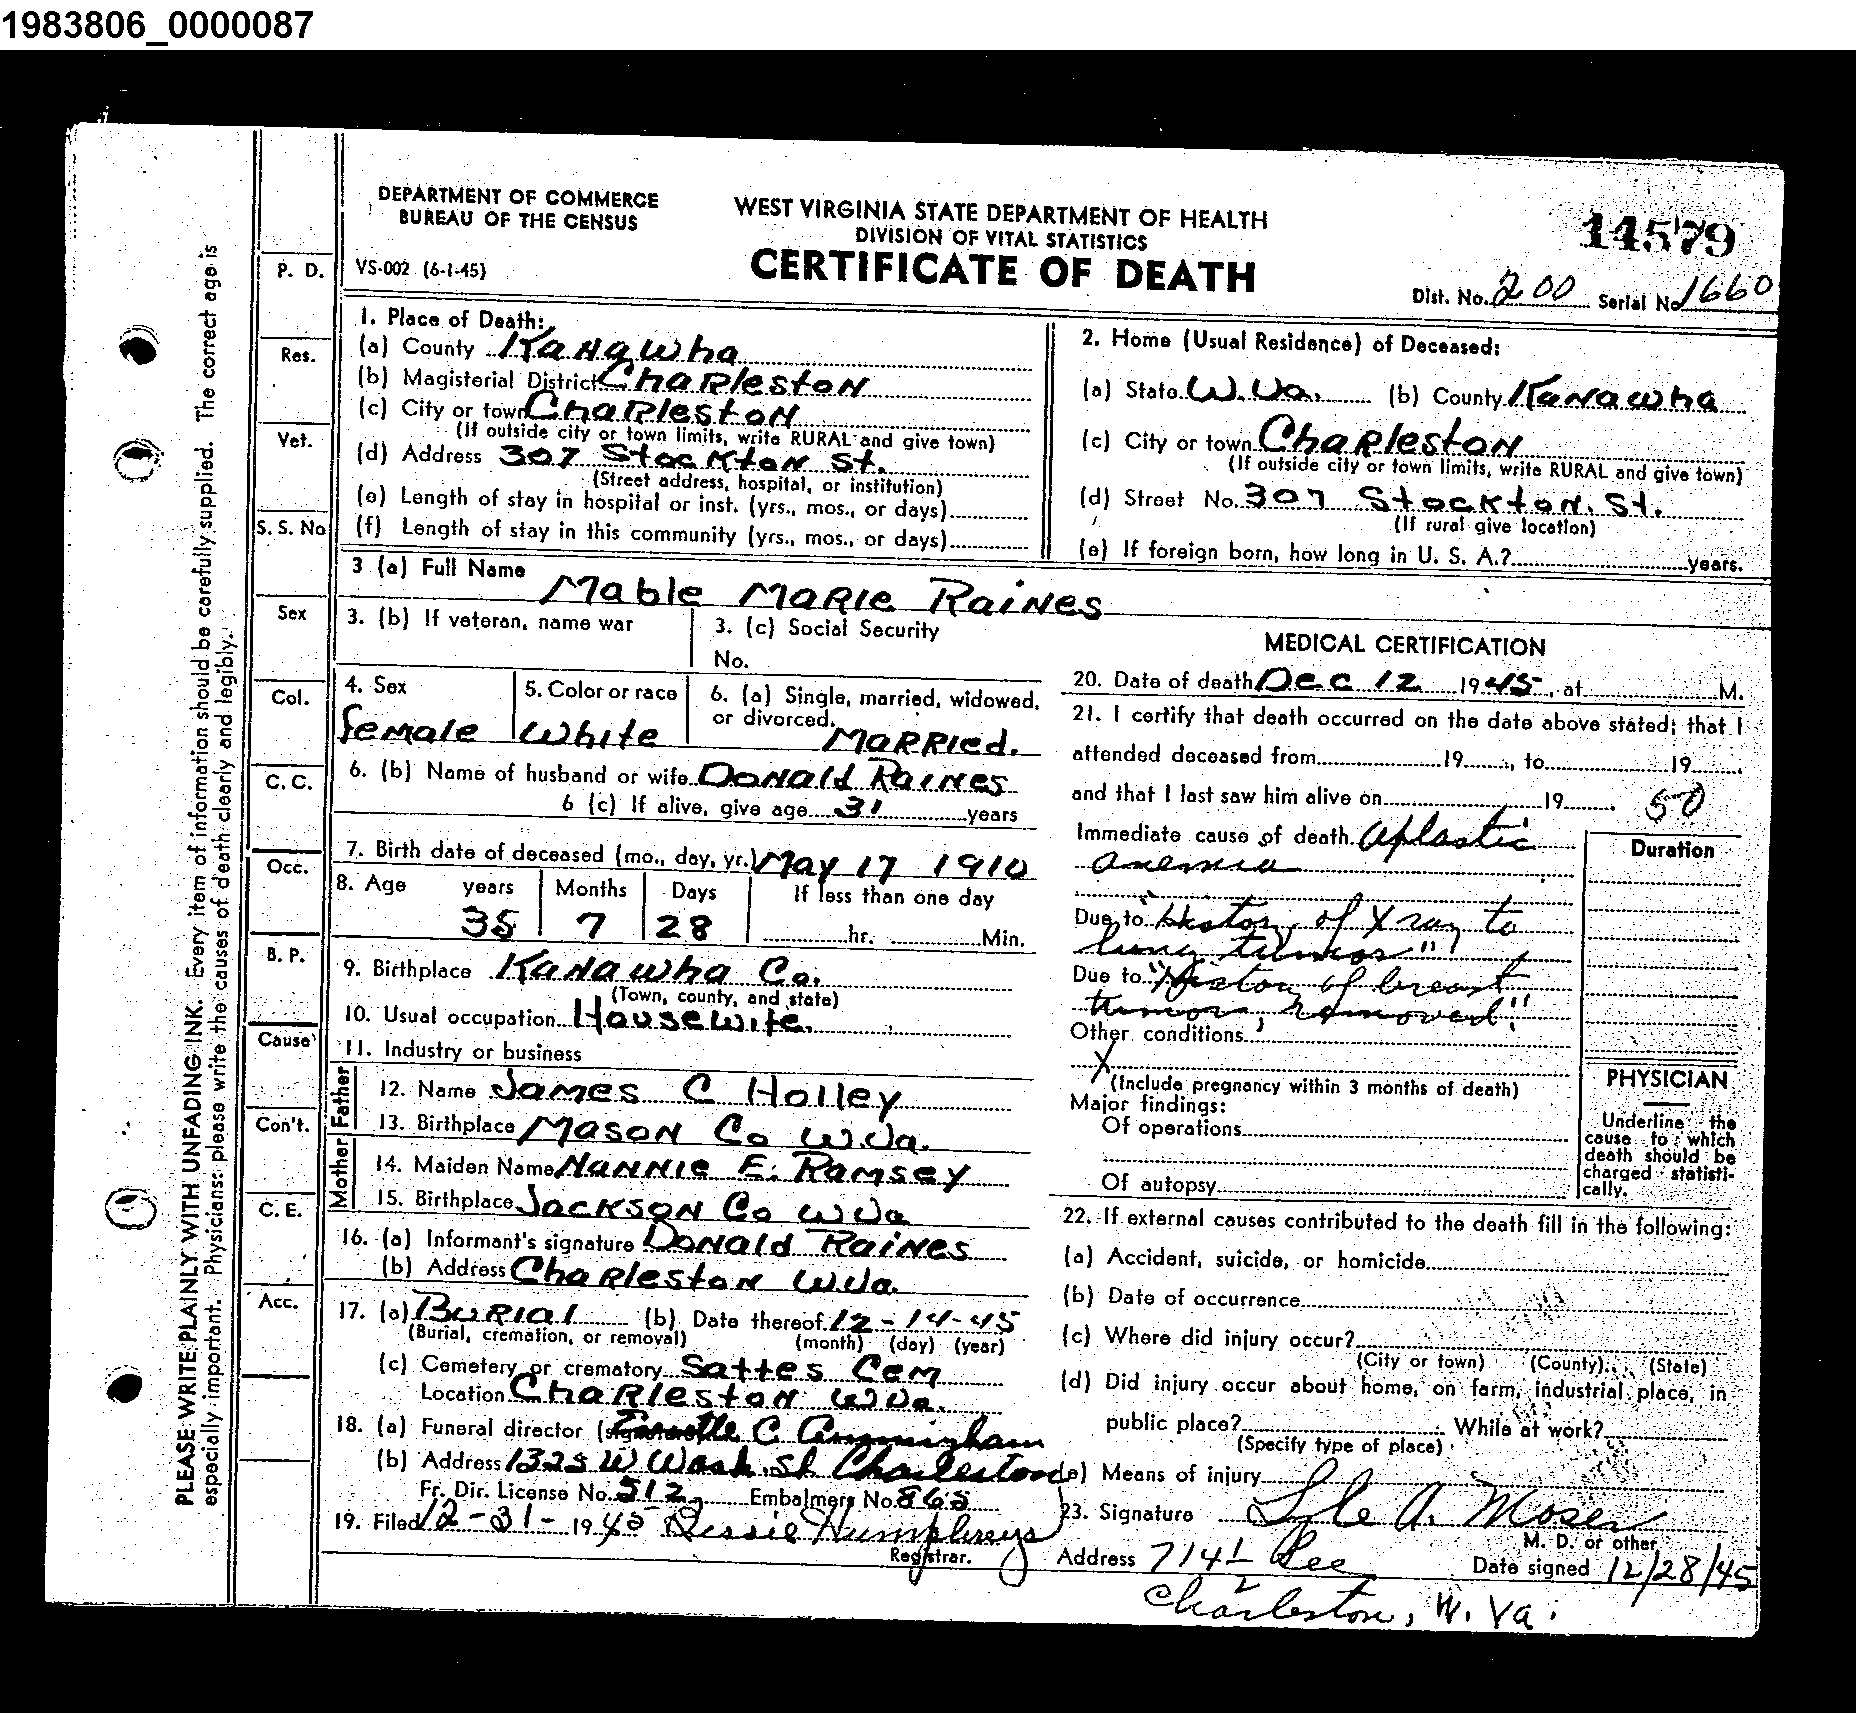 1983806_0000087
DEPARTMENT OF COMMERCE
BUREAU OF THE CENSUS
WEST VIRGINIA STATE DEPARTMENT OF HEALTH
DIVISION OF VITAL STATISTICS
CERTIFICATE OF DEATH
14579
VS-002 (6-1-45)
Dist. No. 200 Serial No 1660
PLEASE WRITE PLAINLY WITH UNFADING INK. Every item of information should be carefully supplied. The correct age is
especially important. Physicians: please write the causes of death clearly and legibly.
P. D.
Res.
Vet.
S. S. No
Sex
Col.
C. C.
Occ.
B. P.
Cause
Con't.
C. E.
Acc.
1. Place of Death:
(a) County Kanawha
(b) Magisterial District Charleston
(c) City or town Charleston
(If outside city or town limits, write RURAL and give town)
(d) Address 307 Stockton St.
(Street address, hospital, or institution)
(e) Length of stay in hospital or inst. (yrs., mos., or days)
(f) Length of stay in this community (yrs., mos., or days)
2. Home (Usual Residence) of Deceased:
(a) State W.Va. (b) County Kanawha
(c) City or town Charleston
(If outside city or town limits, write RURAL and give town)
(d) Street No. 307 Stockton St.
(If rural give location)
(e) If foreign born, how long in U. S. A.? years.
3 (a) Full Name Mable Marie Raines
3. (b) If veteran, name war
3. (c) Social Security
No.
4. Sex
female
5. Color or race
White
6. (a) Single, married, widowed,
or divorced. Married.
6. (b) Name of husband or wife Donald Raines
6 (c) If alive, give age 31 years
7. Birth date of deceased (mo., day, yr.) May 17 1910
8. Age years Months Days If less than one day
35 7 28 hr. Min.
9. Birthplace Kanawha Co.
(Town, county, and state)
10. Usual occupation Housewife.
11. Industry or business
Father
12. Name James C Holley
13. Birthplace Mason Co W.Va.
Mother
14. Maiden Name Nannie E. Ramsey
15. Birthplace Jackson Co W Va
16. (a) Informant's signature Donald Raines
(b) Address Charleston W.Va.
17. (a) Burial (b) Date thereof 12-14-45
(Burial, cremation, or removal) (month) (day) (year)
(c) Cemetery or crematory Sattes Cem
Location Charleston W Va.
18. (a) Funeral director C. Cunningham
(b) Address 1325 W Wash. St Charleston
Fr. Dir. License No. 512 Embalmers No. 865
19. Filed 12-31-1945 Bessie Humphreys
Registrar.
MEDICAL CERTIFICATION
20. Date of death Dec 12 1945, at M.
21. I certify that death occurred on the date above stated; that I
attended deceased from 19 , to 19 ,
and that I last saw him alive on 19 . 50
Immediate cause of death Aplastic
anemia
Duration
Due to "History of X ray to
lung tumor"
Due to "History of breast
tumor, removed"
Other conditions
X
(Include pregnancy within 3 months of death)
Major findings:
Of operations
Of autopsy
PHYSICIAN
Underline the
cause to which
death should be
charged statisti-
cally.
22. If external causes contributed to the death fill in the following:
(a) Accident, suicide, or homicide
(b) Date of occurrence
(c) Where did injury occur?
(City or town) (County) (State)
(d) Did injury occur about home, on farm, industrial place, in
public place? While at work?
(Specify type of place)
(e) Means of injury
23. Signature Lyle A. Moser
M. D. or other
Address 714½ Lee Date signed 12/28/45
Charleston, W. Va.